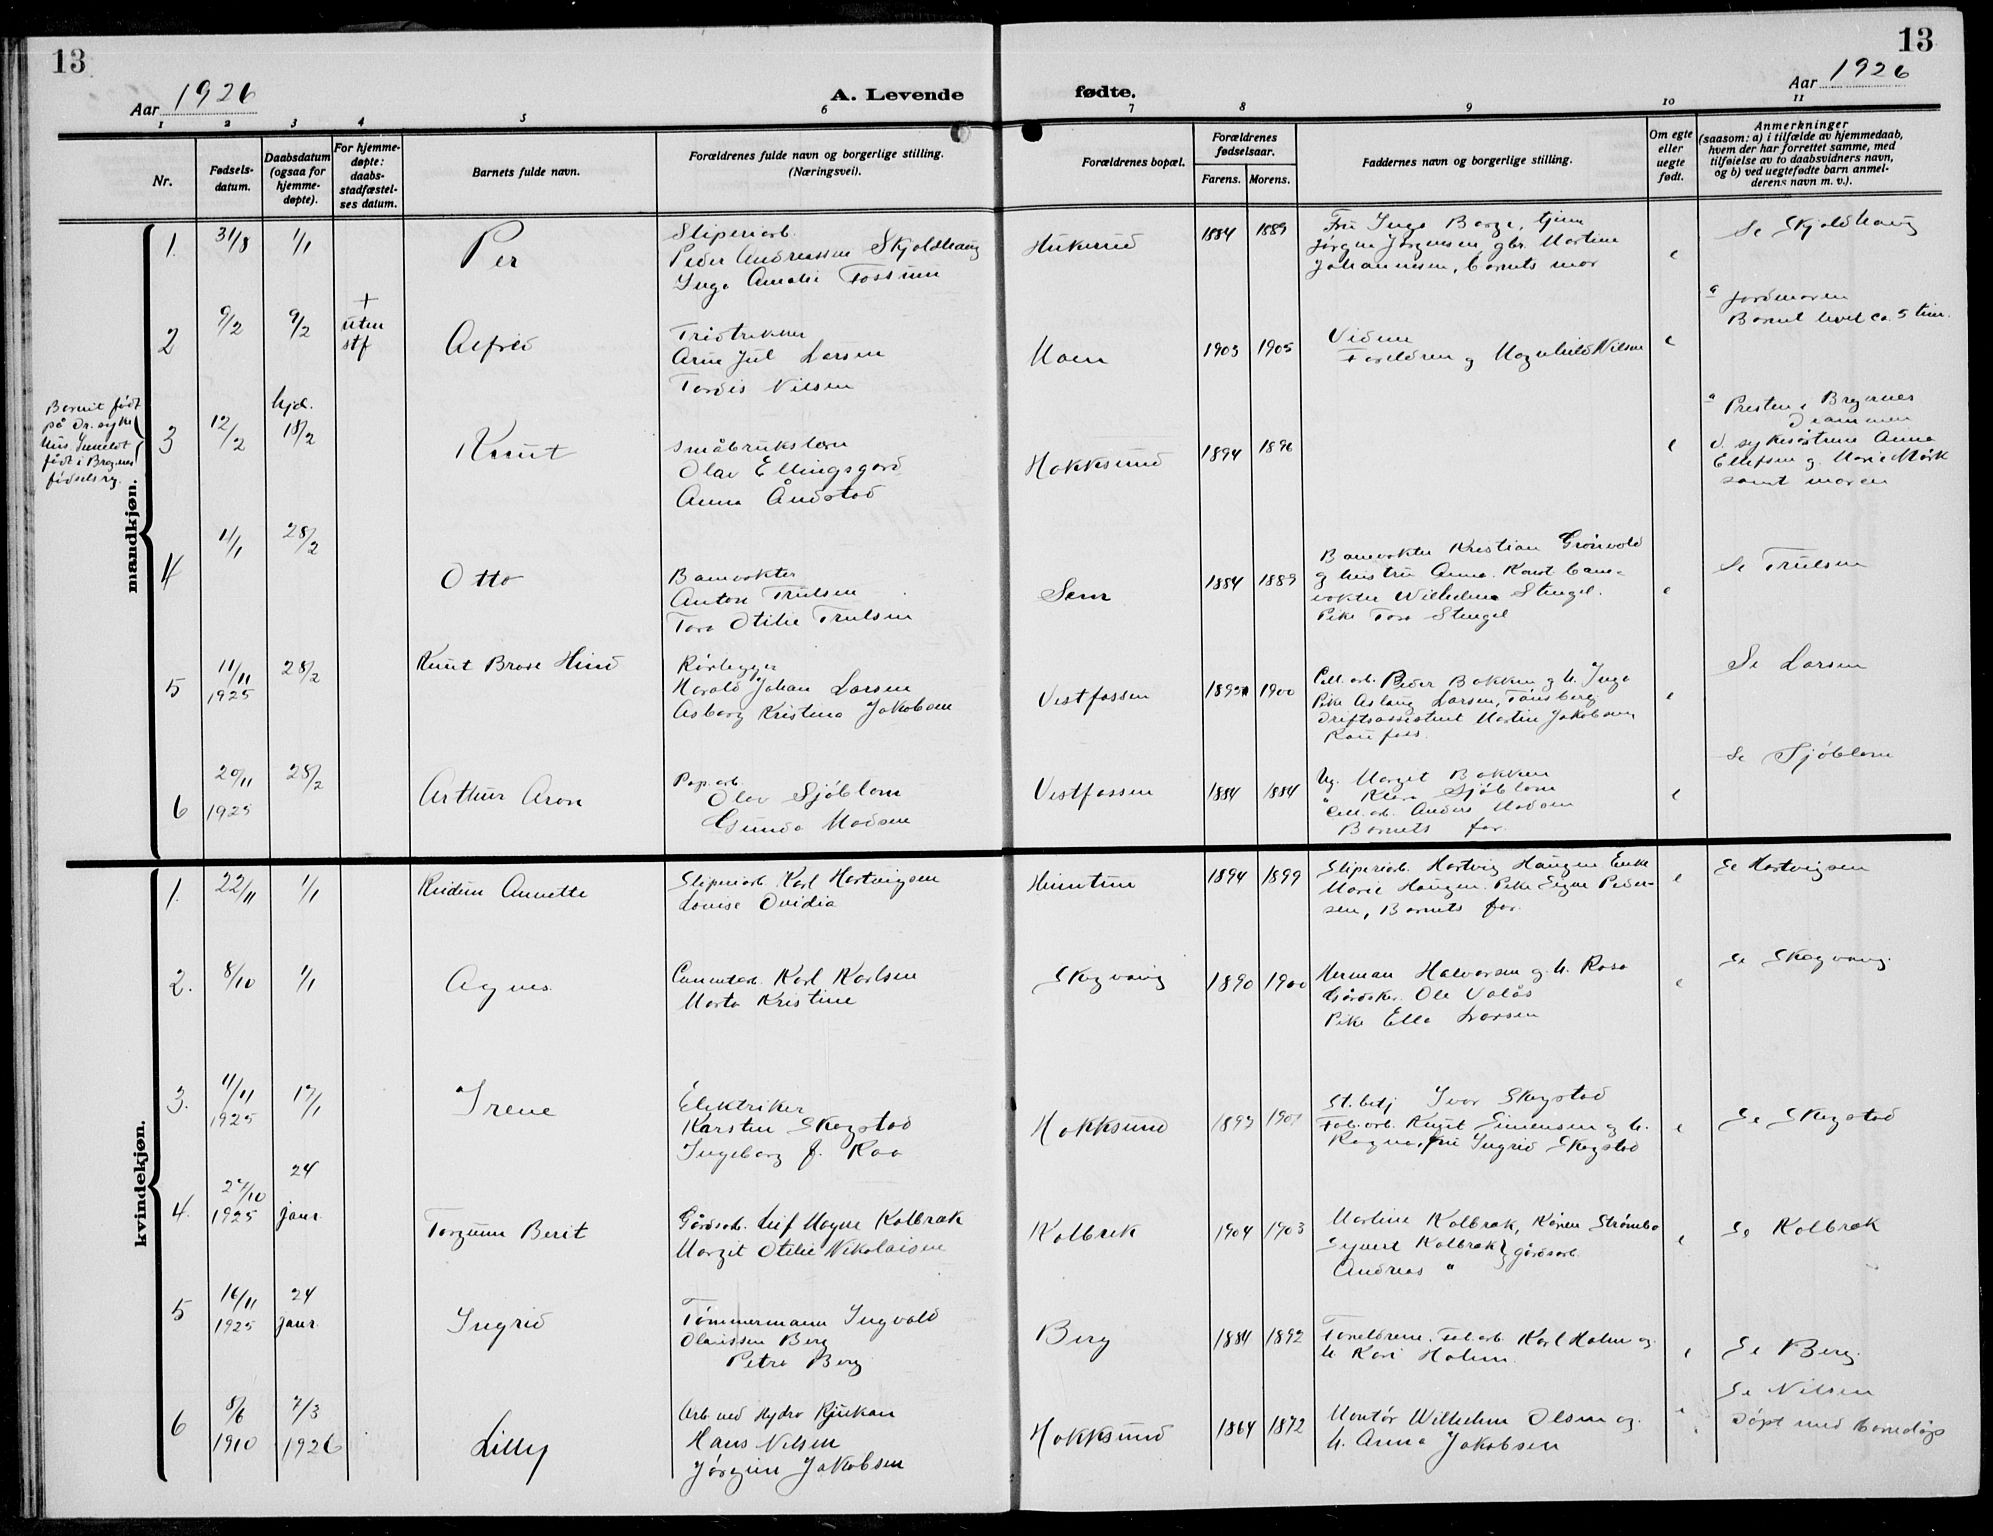 13
13
Aar 1926
A. Levende
fødte.
Aar 1926
1 2 3 4 5 6 7 8 9 10 11
Nr.
Fødsels-
datum.
Daabsdatum
(ogsaa for
hjemme-
døpte).
For hjemme-
døpte:
daabs-
stadfæstel-
ses datum.
Barnets fulde navn.
Forældrenes fulde navn og borgerlige stilling.
(Næringsvei).
Forældrenes bopæl.
Forældrenes
fødselsaar.
Farens. Morens.
Faddernes navn og borgerlige stilling.
Om egte
eller
uegte
født.
Anmerkninger
(saasom: a) i tilfælde av hjemmedaab,
hvem der har forrettet samme, med
tilføielse av to daabsvidners navn,
og b) ved uegtefødte barn anmel-
derens navn m. v.).
mandkjøn.
1. 31/8 1/1
Per
Sliperiarb.
Peder Andreassen Skjoldhaug
Inga Amalie Fossum
Huksund
1884 1889
Fru Inga Borge, tjen
Jørgen Jørgensen, gbr. Martin
Johannesen, barnets mor
e
Se Skjoldhaug
2 9/2 9/2
+
uten
stf
Alfred
Trådtrekker
Arne Jul Larsen
Tordis Nilsen
Moen
1903 1905
Vidner
Foreldren og Magnhild Nilsen
e
a jordmoren
Barnet levet ca. 5 tim.
Barnet født
på Dr. syke
hus Inmeldt
født i Bragnes
fødselsrg.
3 12/2
hjd.
18/2
Knut
Småbruksleru
Olav Ellingsgard
Anna Åndstad
Hokksund
1894 1896
e
a Presten i Bragernes
Drammen
v. sykesøstrene Anna
Ellefsen og Marie Mørk
samt moren
4 11/1 28/2
Otto
Banevokter
Anton Trulsen
Tora Otilie Trulsen
Sem
1884 1889
Banevokter Kristian Grønvold
og hustru Anna. Konst bane-
vokter Wilhelm Stengel.
Pike Tora Stengel
e
Se Trulsen
5 11/11
1925
28/2
Knut Brose Hind
Rørlegger
Harald Johan Larsen
Asborg Kristine Jakobsen
Vestfossen
1895 1900
Cell. arb. Peder Bakken og h. Inga
Pike Aslaug Larsen, Tønsberg
Driftsassistent Martin Jakobsen
Raufoss.
e
Se Larsen
6 20/11
1925
28/2
Arthur Aron
Pap. arb.
Olav Sjöblom
Gunda Madsen
Vestfossen
1884 1884
Ug. Margit Bakken
" Klara Sjöblom
Cell. arb. Anders Madsen
Barnets far.
e
Se Sjöblom
kvindekjøn.
1. 22/11 1/1
Reidun Annette
Sliperiarb. Karl Hartvigsen
Lovise Ovidia
1894 1899
Sliperiarb. Hartvig Haugen Enke
Marie Haugen. Pike Signe Peder-
sen, Barnets far.
e
Se Hartvigsen
2. 8/10 1/1
Agnes
Cementarb. Karl Karlsen
Marta Kristine
Skogvang
1890 1900
Herman Halvorsen og h. Rosa
Gårdsker. Ole Valås
Pike Ella Larsen
e
Se Skogvang.
3. 11/11
1925
17/1
Irene
Elektriker
Karsten Skogstad
Ingeborg f. Raa
Hokksund
1893 1901
St.betj Ivar Skogstad
Fab.arb. Knut Simensen og h.
Ragna, fru Ingrid Skogstad
e
Se Skogstad
4. 27/10
1925
24
janr.
Torgunn Berit
Gårdsarb. Leif Magne Kolbræk
Margit Otilie Nikolaisen
Kolbrek
1904 1903
Martine Kolbræk, Karen Strømbo
Syvert Kolbræk } gårdsarb.
Andreas "
e
Se Kolbræk
5 16/11
1925
24
janr.
Ingrid
Tømmermann Ingvald
Olaussen Berg
Petra Berg
Berg
1884 1892
Foreldrene. Fab.arb. Karl Holm og
h. Kari Holm.
e
Se Berg.
6 8/6
1910
7/3
1926
Lilly
Arb ved Hydro Rjukan
Hans Nilsen
Jørgine Jakobsen
Hokksund
1864 1872
Montør Wilhelm Olsen og
h. Anna Jakobsen
e
Se Nilsen
Døpt med barnedåp